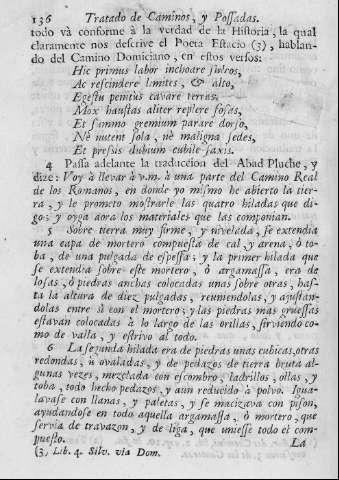 136 Tratado de Caminos, y Possadas.
todo và conforme à la verdad de la Historia, la qual
claramente nos descrive el Poeta Estacio (3), hablan-
do del Camino Domiciano, en estos versos:
Hic primus labor inchoare sulcos,
Ac rescindere limites, & alto,
Egestu penitùs cavare terras:
Mox haustas aliter replere fosas,
Et summo gremium parare dorso,
Nè nutent sola, nè maligna sedes,
Et presus dubium cubile saxis.
4 Passa adelante la traduccion del Abad Pluche, y
dize: Voy à llevar à v.m. à una parte del Camino Real
de los Romanos, en donde yo mismo he abierto la tier-
ra, y le prometo mostrarle las quatro hiladas que di-
go; y oyga aora los materiales que las componian.
5 Sobre tierra muy firme, y nivelada, se extendia
una capa de mortero compuesta de cal, y arena, ò to-
ba, de una pulgada de espessa; y la primer hilada que
se extendia sobre este mortero, ò argamassa, era de
losas, ò piedras anchas colocadas unas sobre otras, has-
ta la altura de diez pulgadas, reuniendolas, y ajustan-
dolas entre sì con el mortero; y las piedras mas gruessas
estavan colocadas à lo largo de las orillas, sirviendo co-
mo de valla, y estrivo al todo.
6 La segunda hilada era de piedras unas cubicas, otras
redondas, ù ovaladas, y de pedazos de tierra bruta al-
gunas vezes, mezclada con escombro, ladrillos, ollas, y
toba, todo hecho pedazos, y aun reducido à polvo. Igua-
lavase con llanas, y paletas, y se macizava con pison,
ayudandose en todo aquella argamassa, ò mortero, que
servia de travazon, y de liga, que uniesse todo el com-
puesto. La
(3) Lib. 4. Silv. via Dom.